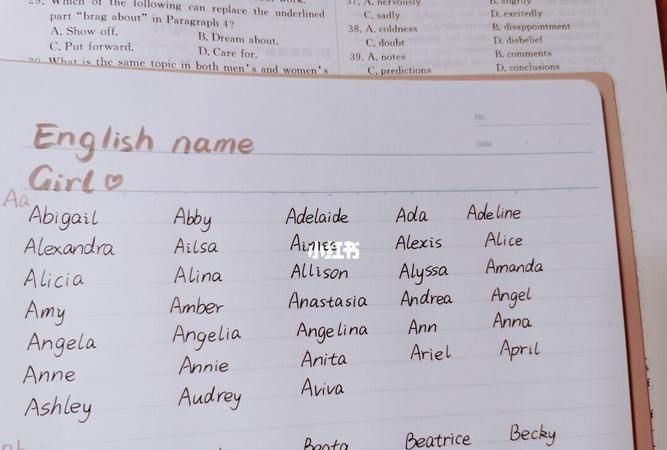 29. Which of the following can replace the underlined
part "brag about" in Paragraph 4?
A. Show off. B. Dream about.
C. Put forward. D. Care for.
What is the same topic in both men's and women's
37. A. nervously B. angrily
C. sadly D. excitedly
38. A. coldness B. disappointment
C. doubt D. disbelief
39. A. notes B. comments
C. predictions D. conclusions
No.
Date
English name
Girl♡
Aa
Abigail Abby Adelaide Ada Adeline
Alexandra Ailsa Aimee Alexis Alice
Alicia Alina Allison Alyssa Amanda
Amy Amber Anastasia Andrea Angel
Angela Angelia Angelina Ann Anna
Anne Annie Anita Ariel April
Ashley Audrey Aviva
小红书
Beatrice Becky